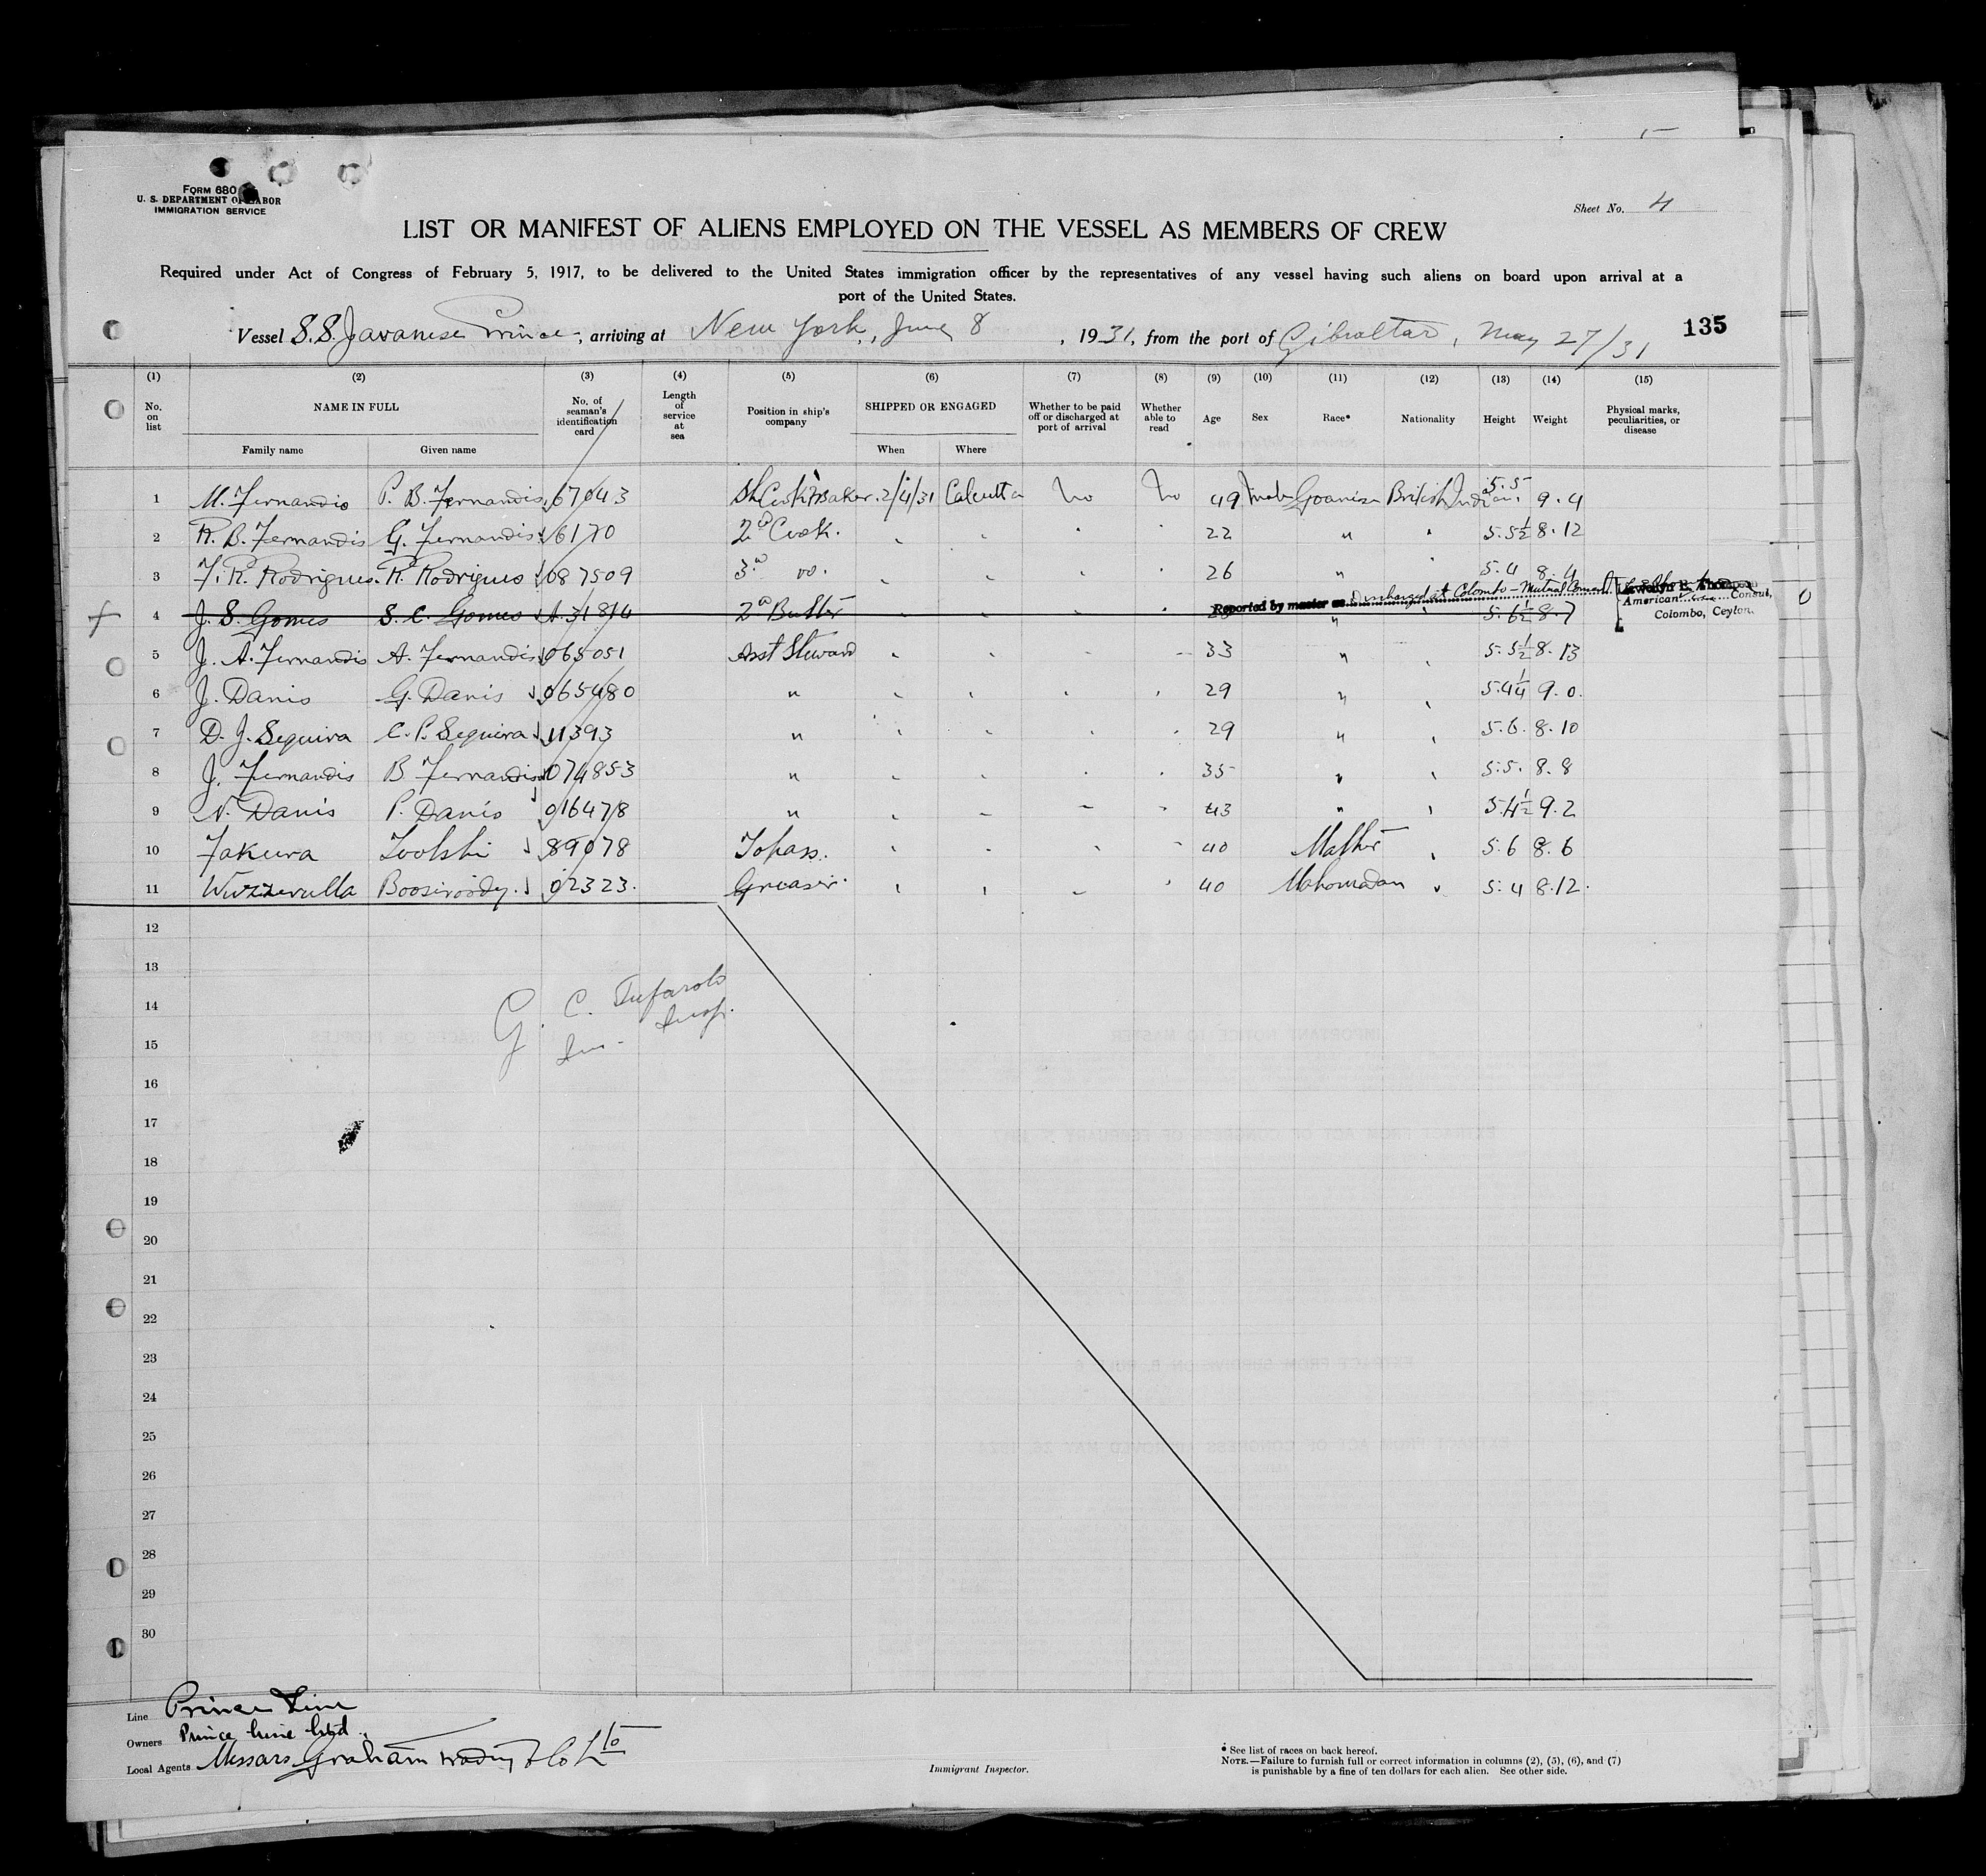 FORM 680
U. S. DEPARTMENT OF LABOR
IMMIGRATION SERVICE
Sheet No. 4
LIST OR MANIFEST OF ALIENS EMPLOYED ON THE VESSEL AS MEMBERS OF CREW
Required under Act of Congress of February 5, 1917, to be delivered to the United States immigration officer by the representatives of any vessel having such aliens on board upon arrival at a
port of the United States.
Vessel S.S. Javanese Prince, arriving at New York, June 8, 1931, from the port of Gibraltar, May 27/31
135
(1) (2) (3) (4) (5) (6) (7) (8) (9) (10) (11) (12) (13) (14) (15)
No. on list NAME IN FULL No. of seaman's identification card Length of service at sea Position in ship's company SHIPPED OR ENGAGED Whether to be paid off or discharged at port of arrival Whether able to read Age Sex Race* Nationality Height Weight Physical marks, peculiarities, or disease
Family name Given name When Where
1 M. Fernandis P. B. Fernandis 67043 Sh Cook & Baker 2/4/31 Calcutta No No 49 Male Goanise British Indian 5.5 9.4
2 R. B. Fernandis G. Fernandis 6170 2nd Cook. 22 " 5.5½ 8.12
3 F. R. Rodrigues. R. Rodrigues 087509 3rd do. 26 " 5.4 8.4
Reported by master as Discharged at Colombo - Mutual Consent Llewellyn E. Thompson
American Vice Consul,
Colombo, Ceylon.
4 J. S. Gomes S. C. Gomes A.31814 2nd Butler " 5.6½ 8.7 0
5 J. A. Fernandis A. Fernandis 065051 Asst Steward 33 " 5.5½ 8.13
6 J. Danis G. Danis 065480 " 29 " 5.4¼ 9.0.
7 D. J. Sequira C. P. Sequira 11393 " 29 " 5.6. 8.10
8 J. Fernandis B Fernandis 074853 " 35 " 5.5. 8.8
9 N. Danis P. Danis 016478 " 43 " 5.4½ 9.2
10 Fakura 89078 Topass. 40 5.6 8.6
11 Wuzzerulla 02323. Greaser. 40 Mahomadan 5.4 8.12.
12
13
14
G. C. Tufarolo
Im. Insp.
15
16
17
18
19
20
21
22
23
24
25
26
27
28
29
30
Line Prince Line
Owners Prince Line Ltd.
Local Agents Messars Graham Trading & Co Ltd
Immigrant Inspector.
* See list of races on back hereof.
NOTE.—Failure to furnish full or correct information in columns (2), (5), (6), and (7)
is punishable by a fine of ten dollars for each alien. See other side.